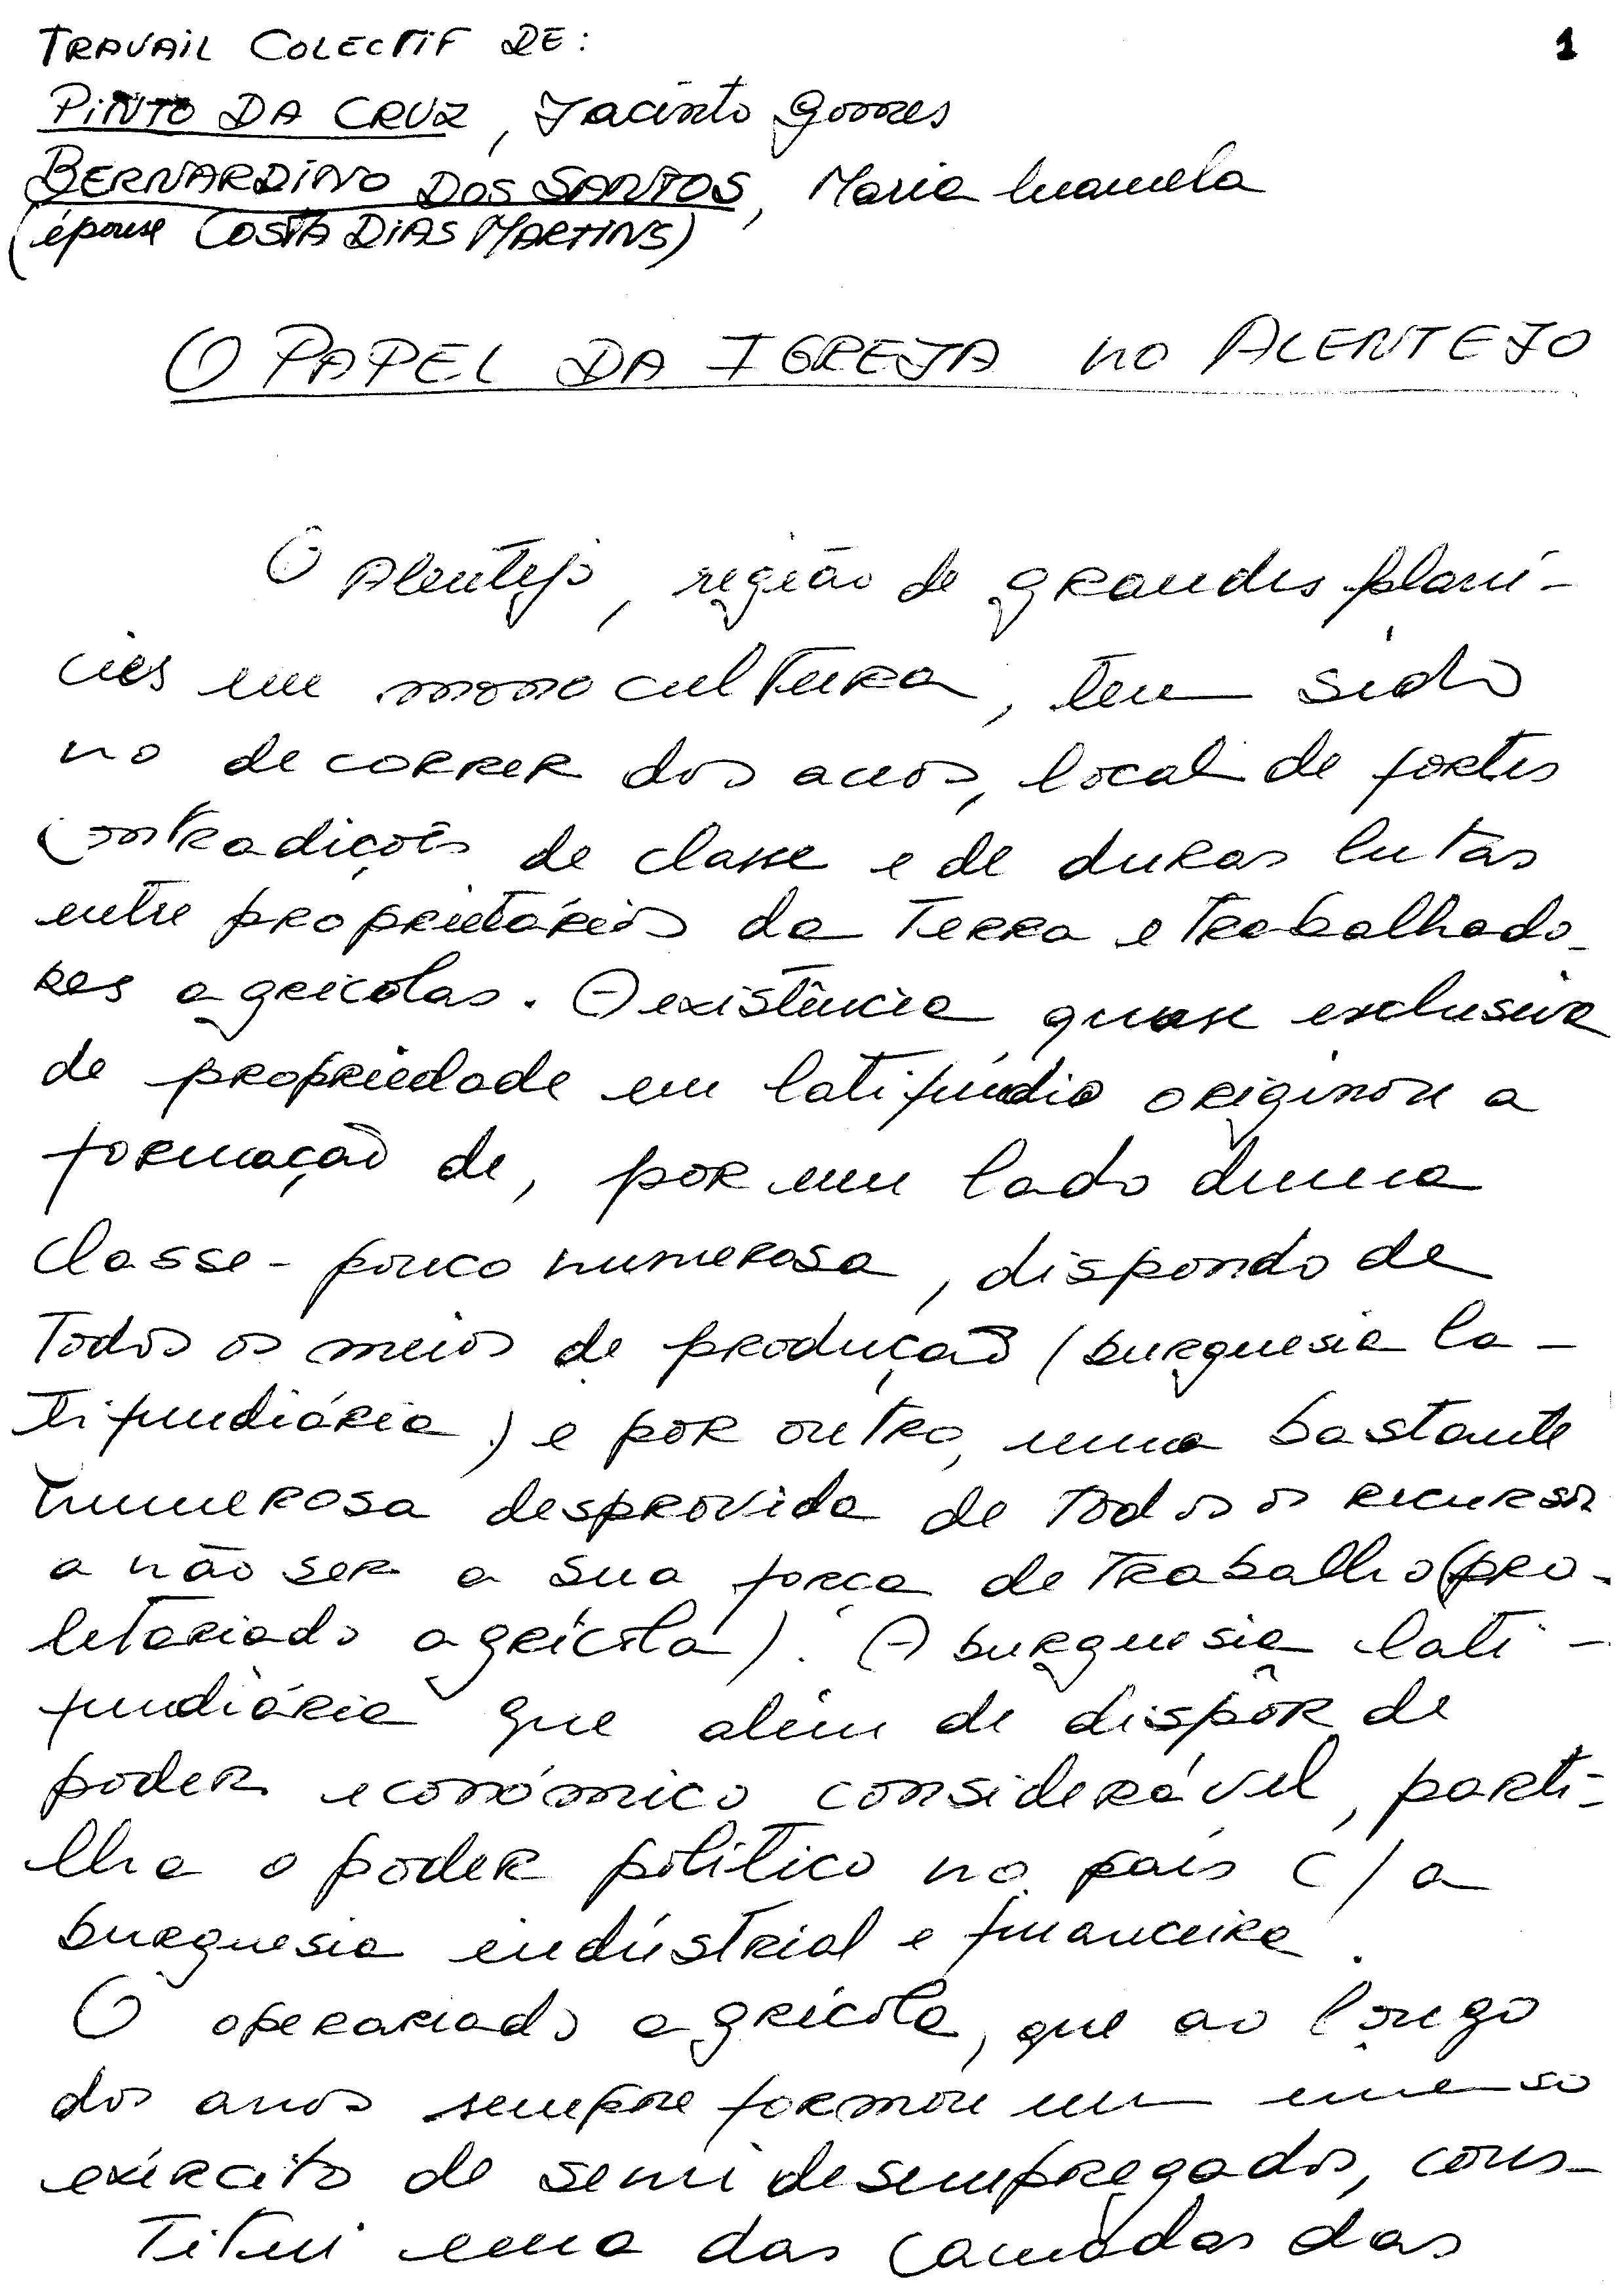 TRAVAIL COLECTIF DE:
1
PINTO DA CRUZ, Jacinto Gomes
BERNARDINO DOS SANTOS, Maria Manuela
(épouse COSTA DIAS MARTINS)
O PAPEL DA IGREJA no ALENTEJO
O Alentejo, região de grandes planí-
cies em monocultura, tem sido
no decorrer dos anos, local de fortes
contradições de classe e de duras lutas
entre proprietários da terra e trabalhado-
res agrícolas. A existência quase exclusiva
de propriedade em latifúndio originou a
formação de, por um lado duma
classe - pouco numerosa, dispondo de
todos os meios de produção (burguesia la-
tifundiária) e por outro, uma bastante
numerosa desprovida de todos os recursos
a não ser a sua força de trabalho (pro-
letariado agrícola). A burguesia lati-
fundiária que além de dispôr de
poder económico considerável, parti-
lha o poder político no país c/ a
burguesia indústrial e financeira.
O operariado agrícola, que ao longo
dos anos sempre formou um imenso
exército de semidesempregados, cons-
titui uma das camadas das